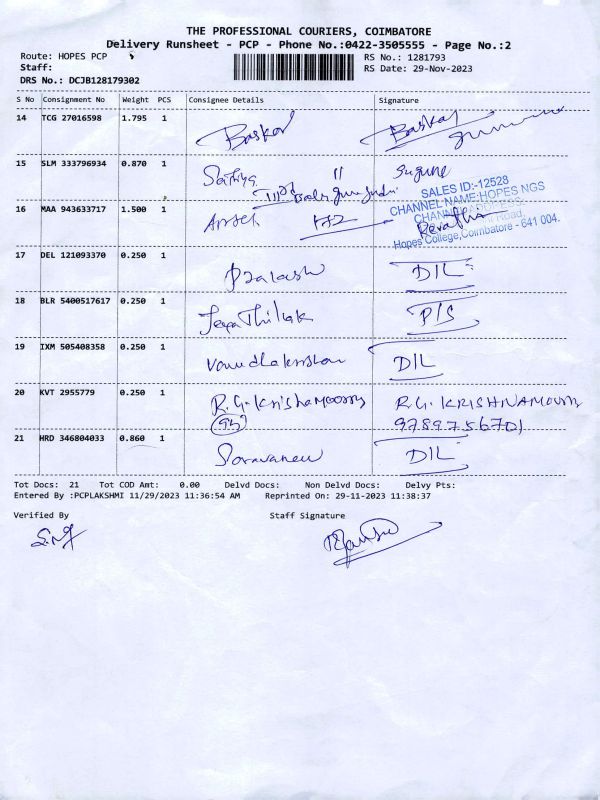 THE PROFESSIONAL COURIERS, COIMBATORE
Delivery Runsheet - PCP - Phone No.:0422-3505555 - Page No.:2
Route: HOPES PCP
RS No.: 1281793
Staff:
RS Date: 29-Nov-2023
DRS No.: DCJB128179302
S No Consignment No Weight PCS Consignee Details Signature
14 TCG 27016598 1.795 1 Baskar Baskar
15 SLM 333796934 0.870 1 Sathya
SALES ID:-12528
CHANNEL NAME:HOPES NGS
16 MAA 943633717 1.500 1 Revathi
Hopes College, Coimbatore - 641 004.
17 DEL 121093370 0.250 1 Prakash D/L
18 BLR 5400517617 0.250 1 JeyaThilak P/S
19 IXM 505408358 0.250 1 D/L
20 KVT 2955779 0.250 1 R.G. Krishnamoorthy R.G. KRISHNAMOORTHY
9789756701
21 HRD 346804033 0.860 1 Saravanan D/L
Tot Docs: 21 Tot COD Amt: 0.00 Delvd Docs: Non Delvd Docs: Delvy Pts:
Entered By :PCPLAKSHMI 11/29/2023 11:36:54 AM Reprinted On: 29-11-2023 11:38:37
Verified By Staff Signature